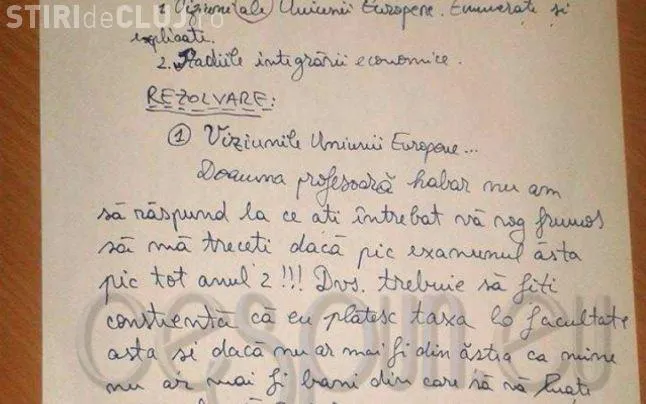 STIRIdeCLUJ.ro
1. Viziuni ale Uniunii Europene. Enumerate si
explicati.
2. Stadiile integrării economice.
REZOLVARE:
① Viziunile Uniunii Europene...
Doamna profesoară habar nu am
să răspund la ce ati întrebat vă rog frumos
să mă treceti dacă pic examunul ăsta
pic tot anul 2!!! Dvs. trebuie să fiti
constientă că eu plătesc taxa la facultate
asta si dacă nu ar mai fi din ăstia ca mine
nu ar mai fi bani din care să vă luati
cespun.eu